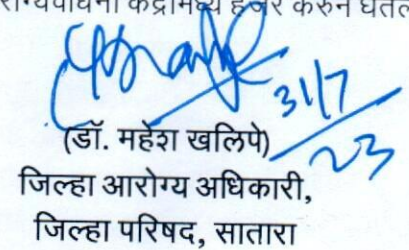 हजर करुन
31/7
23
(डॉ. महेश खलिपे)
जिल्हा आरोग्य अधिकारी,
जिल्हा परिषद, सातारा